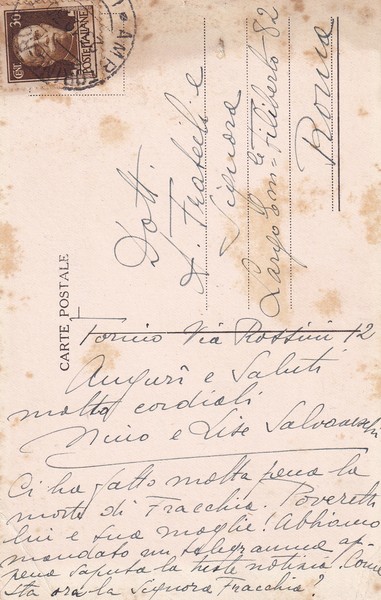 30
CENT.
POSTE ITALIANE
CARTE POSTALE
Dott.
A. Fratelli e
Signora
Largo Em.le Filiberto 82
Roma
Torino Via Rossini 12
Auguri e Saluti
molto cordiali
Nino e Lise Salvaneschi
Ci ha fatto molta pena la
morte di Fracchia. Poveretti
lui e sua moglie! Abbiamo
mandato un telegramma ap-
pena saputa la triste notizia. Come
sta ora la Signora Fracchia?